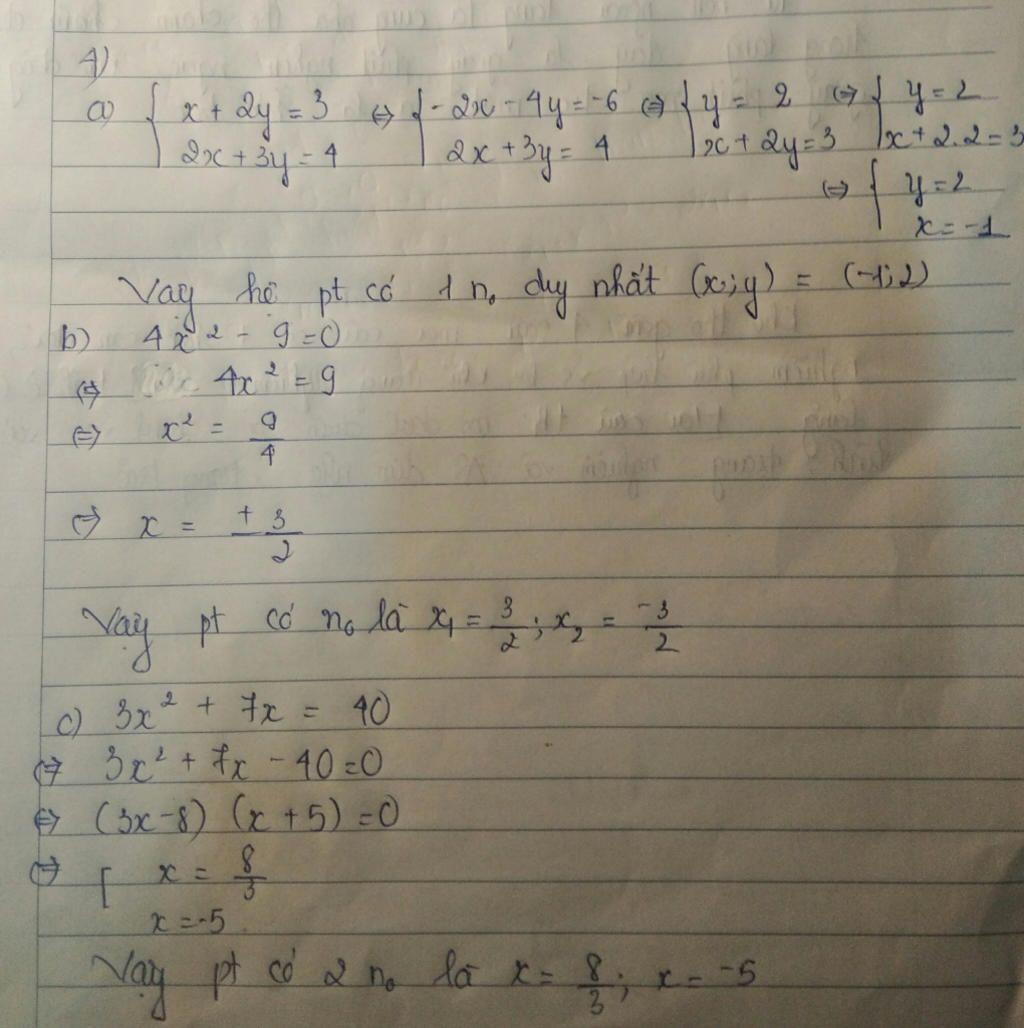 4)
a) { x + 2y = 3 ⇔ { - 2x - 4y = -6 ⇔ { y = 2 ⇔ { y = 2
2x + 3y = 4 2x + 3y = 4 x + 2y = 3 x + 2.2 = 3
⇔ { y = 2
x = -1
Vậy hệ pt có 1 n₀ duy nhất (x;y) = (-1;2)
b) 4x² - 9 = 0
⇔ 4x² = 9
⇔ x² = 9/4
⇔ x = ±3/2
Vậy pt có n₀ là x₁ = 3/2 ; x₂ = -3/2
c) 3x² + 7x = 40
⇔ 3x² + 7x - 40 = 0
⇔ (3x - 8) (x + 5) = 0
⇔ [ x = 8/3
x = -5
Vậy pt có 2 n₀ là x = 8/3 ; x = -5